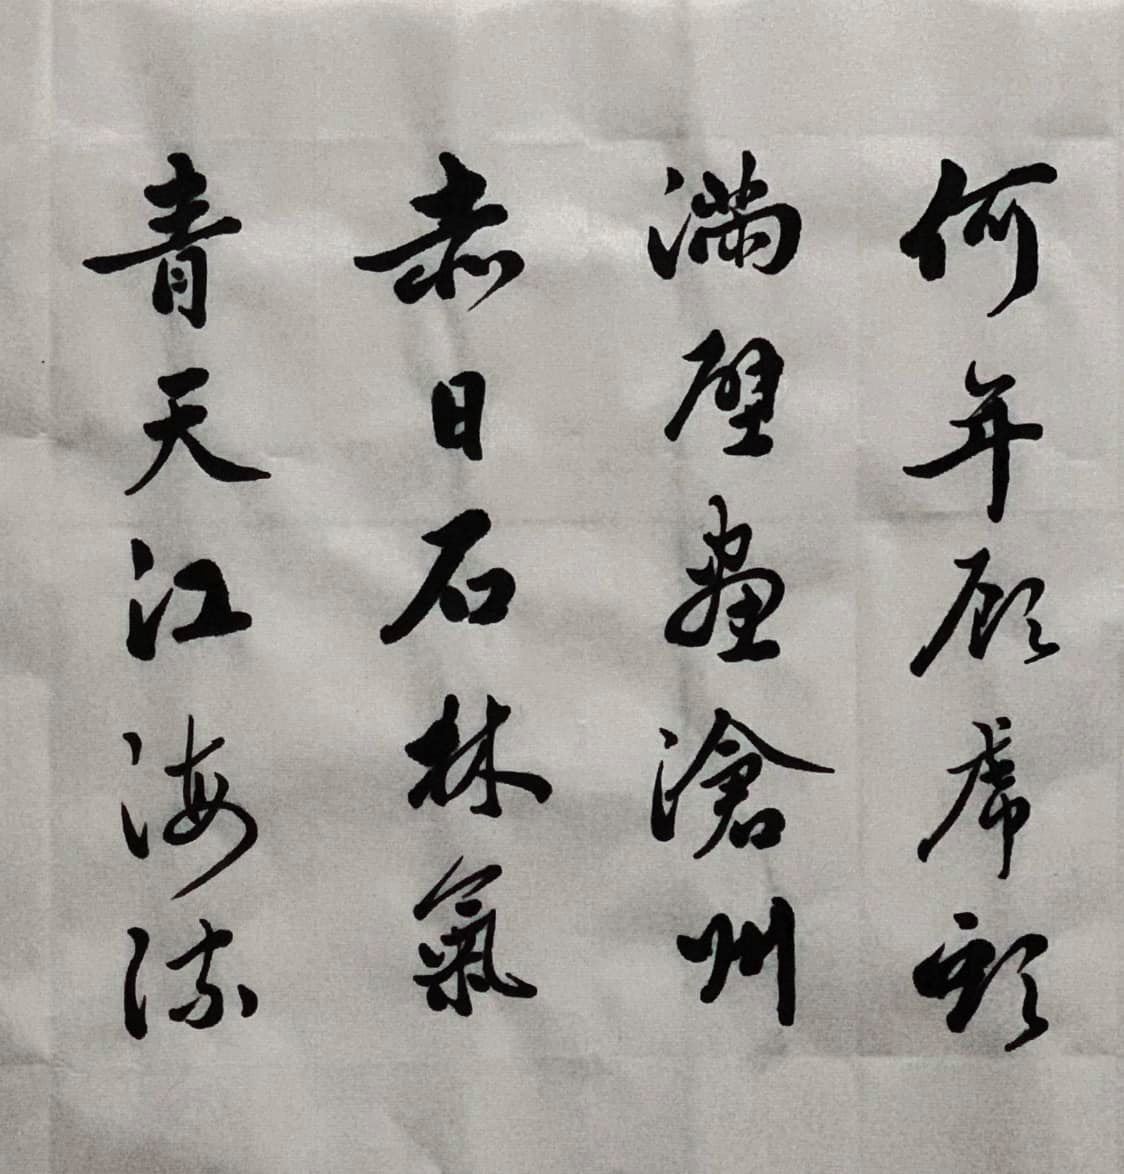 何年顾虎頭
满壁畫滄州
赤日石林氣
青天江海流